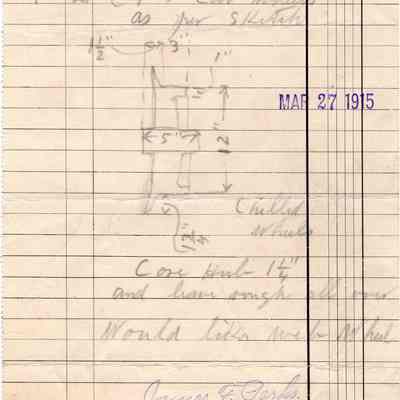 as per sketch
1½" 3" 1"
MAR 27 1915
5" 12"
Chilled
Wheels
1¾"
Core Hub 1¼"
and leave rough all over
Would like web Wheel